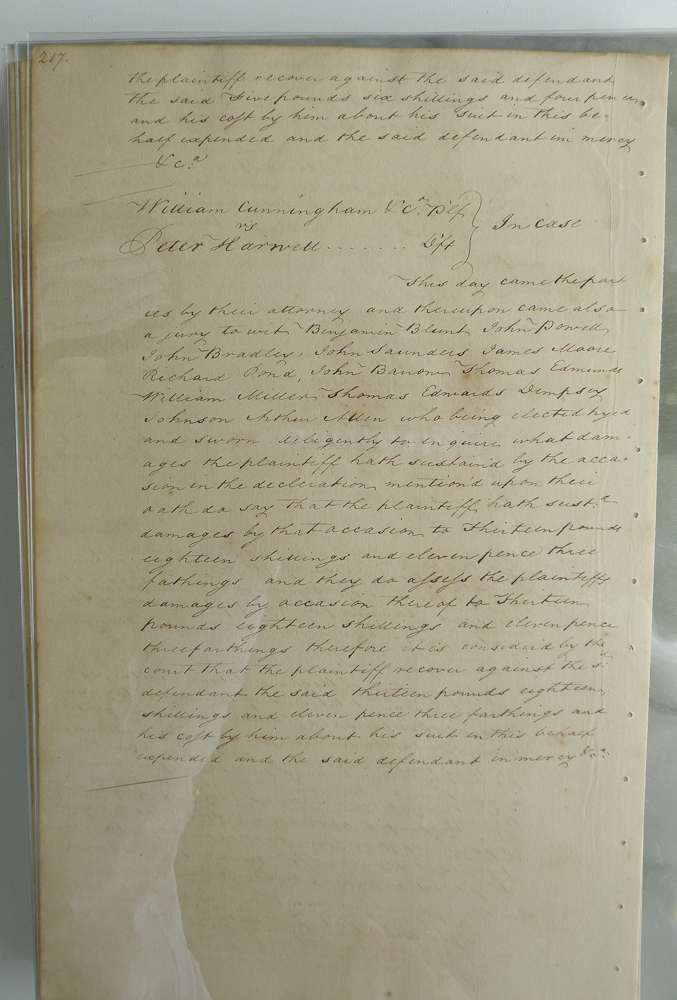 217.
the plaintiff recover against the said defendant
the said Five pounds six shillings and four pence
and his cost by him about his suit in this be-
half expended and the said defendant in mercy
&c.a
William Cunningham &c.a Plf } In Case
vs
Peter Harwell ........ Dft
This day came the part
ies by their attorney and thereupon came also
a jury to wit Benjamin Blunt John Powell
John Bradley, John Saunders James Moore
Richard Pond, John Barrow Thomas Edmunds
William Miller Thomas Edwards Dempsey
Johnson Arthur Allen who being elected tryed
and sworn diligently to inquire what dam-
ages the plaintiff hath sustain'd by the occa-
sion in the declaration mention'd upon their
oath do say that the plaintiff hath sust.d
damages by that occasion to Thirteen pounds
eighteen shillings and eleven pence three
fathings and they do assess the plaintiffs
damages by occasion thereof to Thirteen
pounds eighteen shillings and eleven pence
three farthings therefore it is considerd by the
court that the plaintiff recover against the s.d
defendant the said thirteen pounds eighteen
shillings and eleven pence three farthings and
his cost by him about his suit in this behalf
expended and the said defendant in mercy &c.a